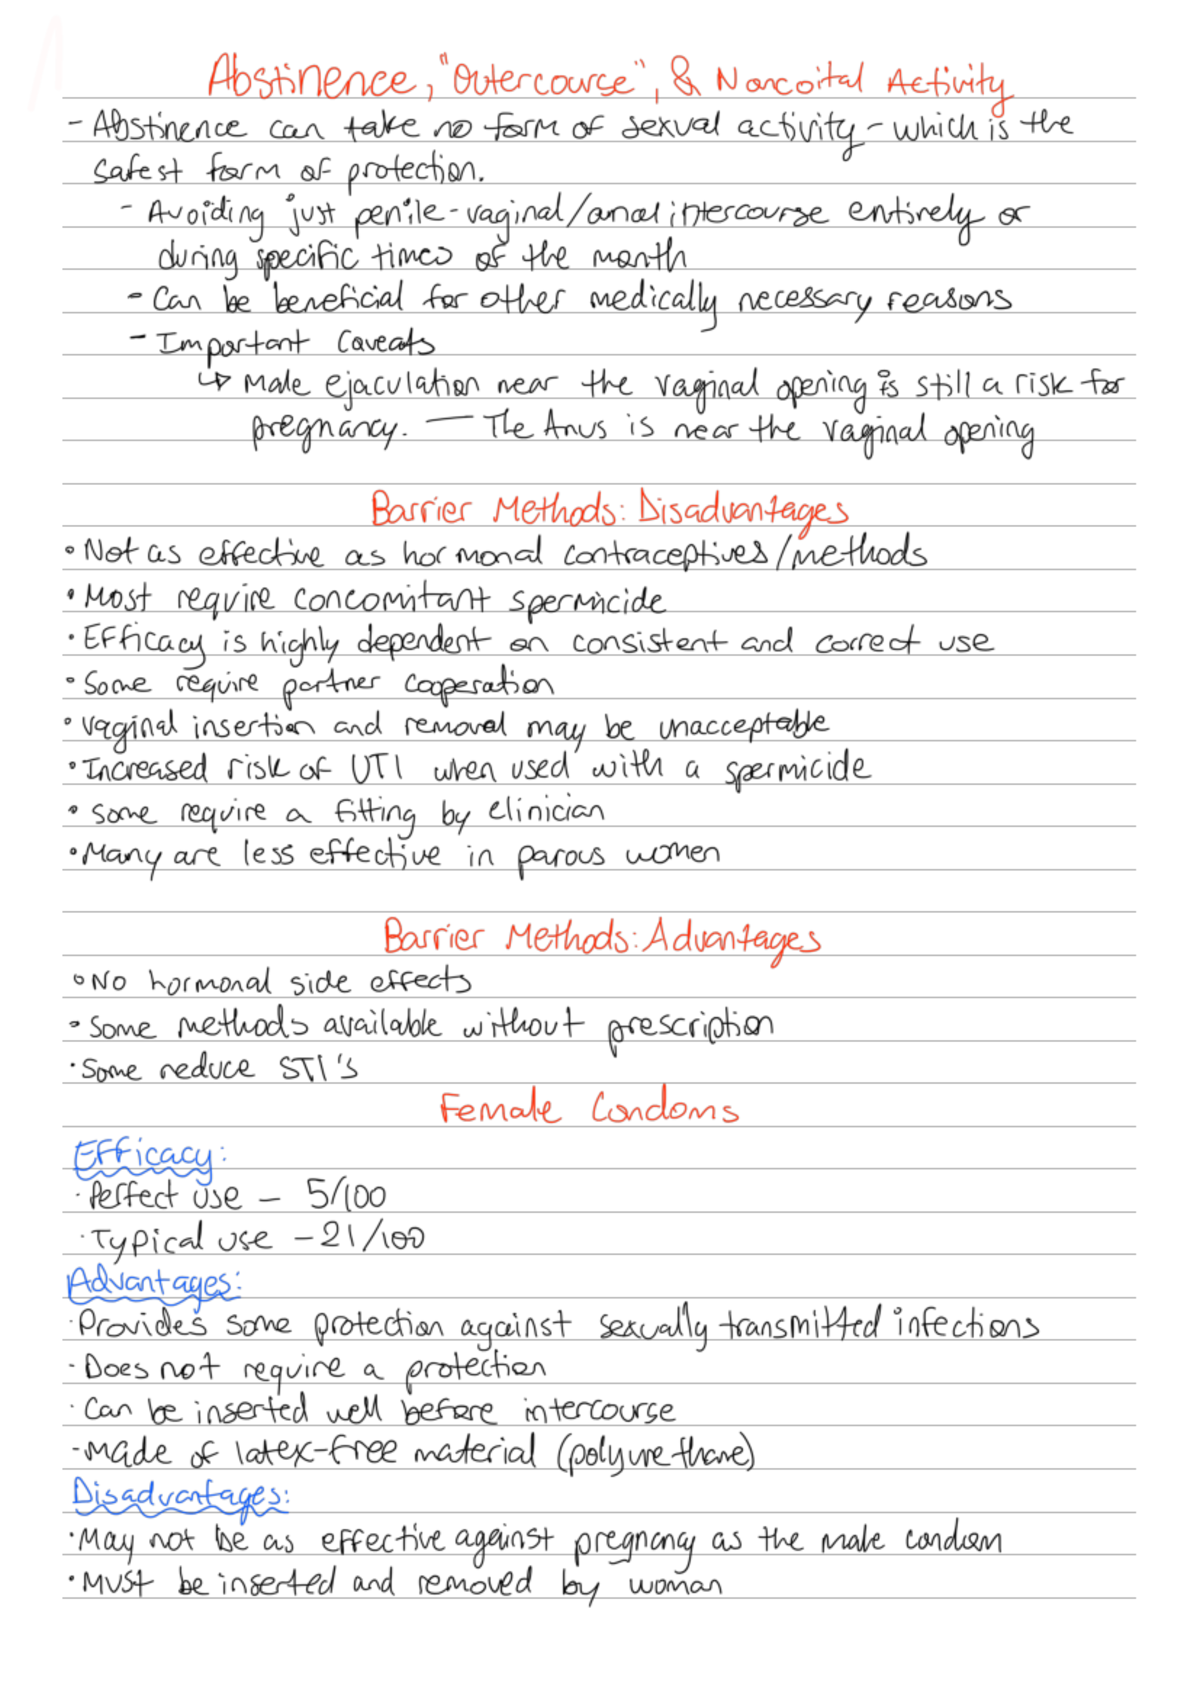 Abstinence, "Outercourse", & Noncoital Activity
- Abstinence can take no form of sexual activity - which is the
safest form of protection.
- Avoiding just penile-vaginal/anal intercourse entirely or
during specific times of the month
- Can be beneficial for other medically necessary reasons
- Important Caveats
↳ Male ejaculation near the vaginal opening is still a risk for
pregnancy. — The Anus is near the vaginal opening
Barrier Methods: Disadvantages
• Not as effective as hormonal contraceptives/methods
• Most require concomitant spermicide
• Efficacy is highly dependent on consistent and correct use
• Some require partner cooperation
• Vaginal insertion and removal may be unacceptable
• Increased risk of UTI when used with a spermicide
• Some require a fitting by clinician
• Many are less effective in parous women
Barrier Methods: Advantages
• No hormonal side effects
• Some methods available without prescription
• Some reduce STI's
Female Condoms
Efficacy:
• Perfect use - 5/100
• Typical use - 21/100
Advantages:
• Provides some protection against sexually transmitted infections
• Does not require a protection
• Can be inserted well before intercourse
- Made of latex-free material (polyurethane)
Disadvantages:
• May not be as effective against pregnancy as the male condom
• Must be inserted and removed by woman